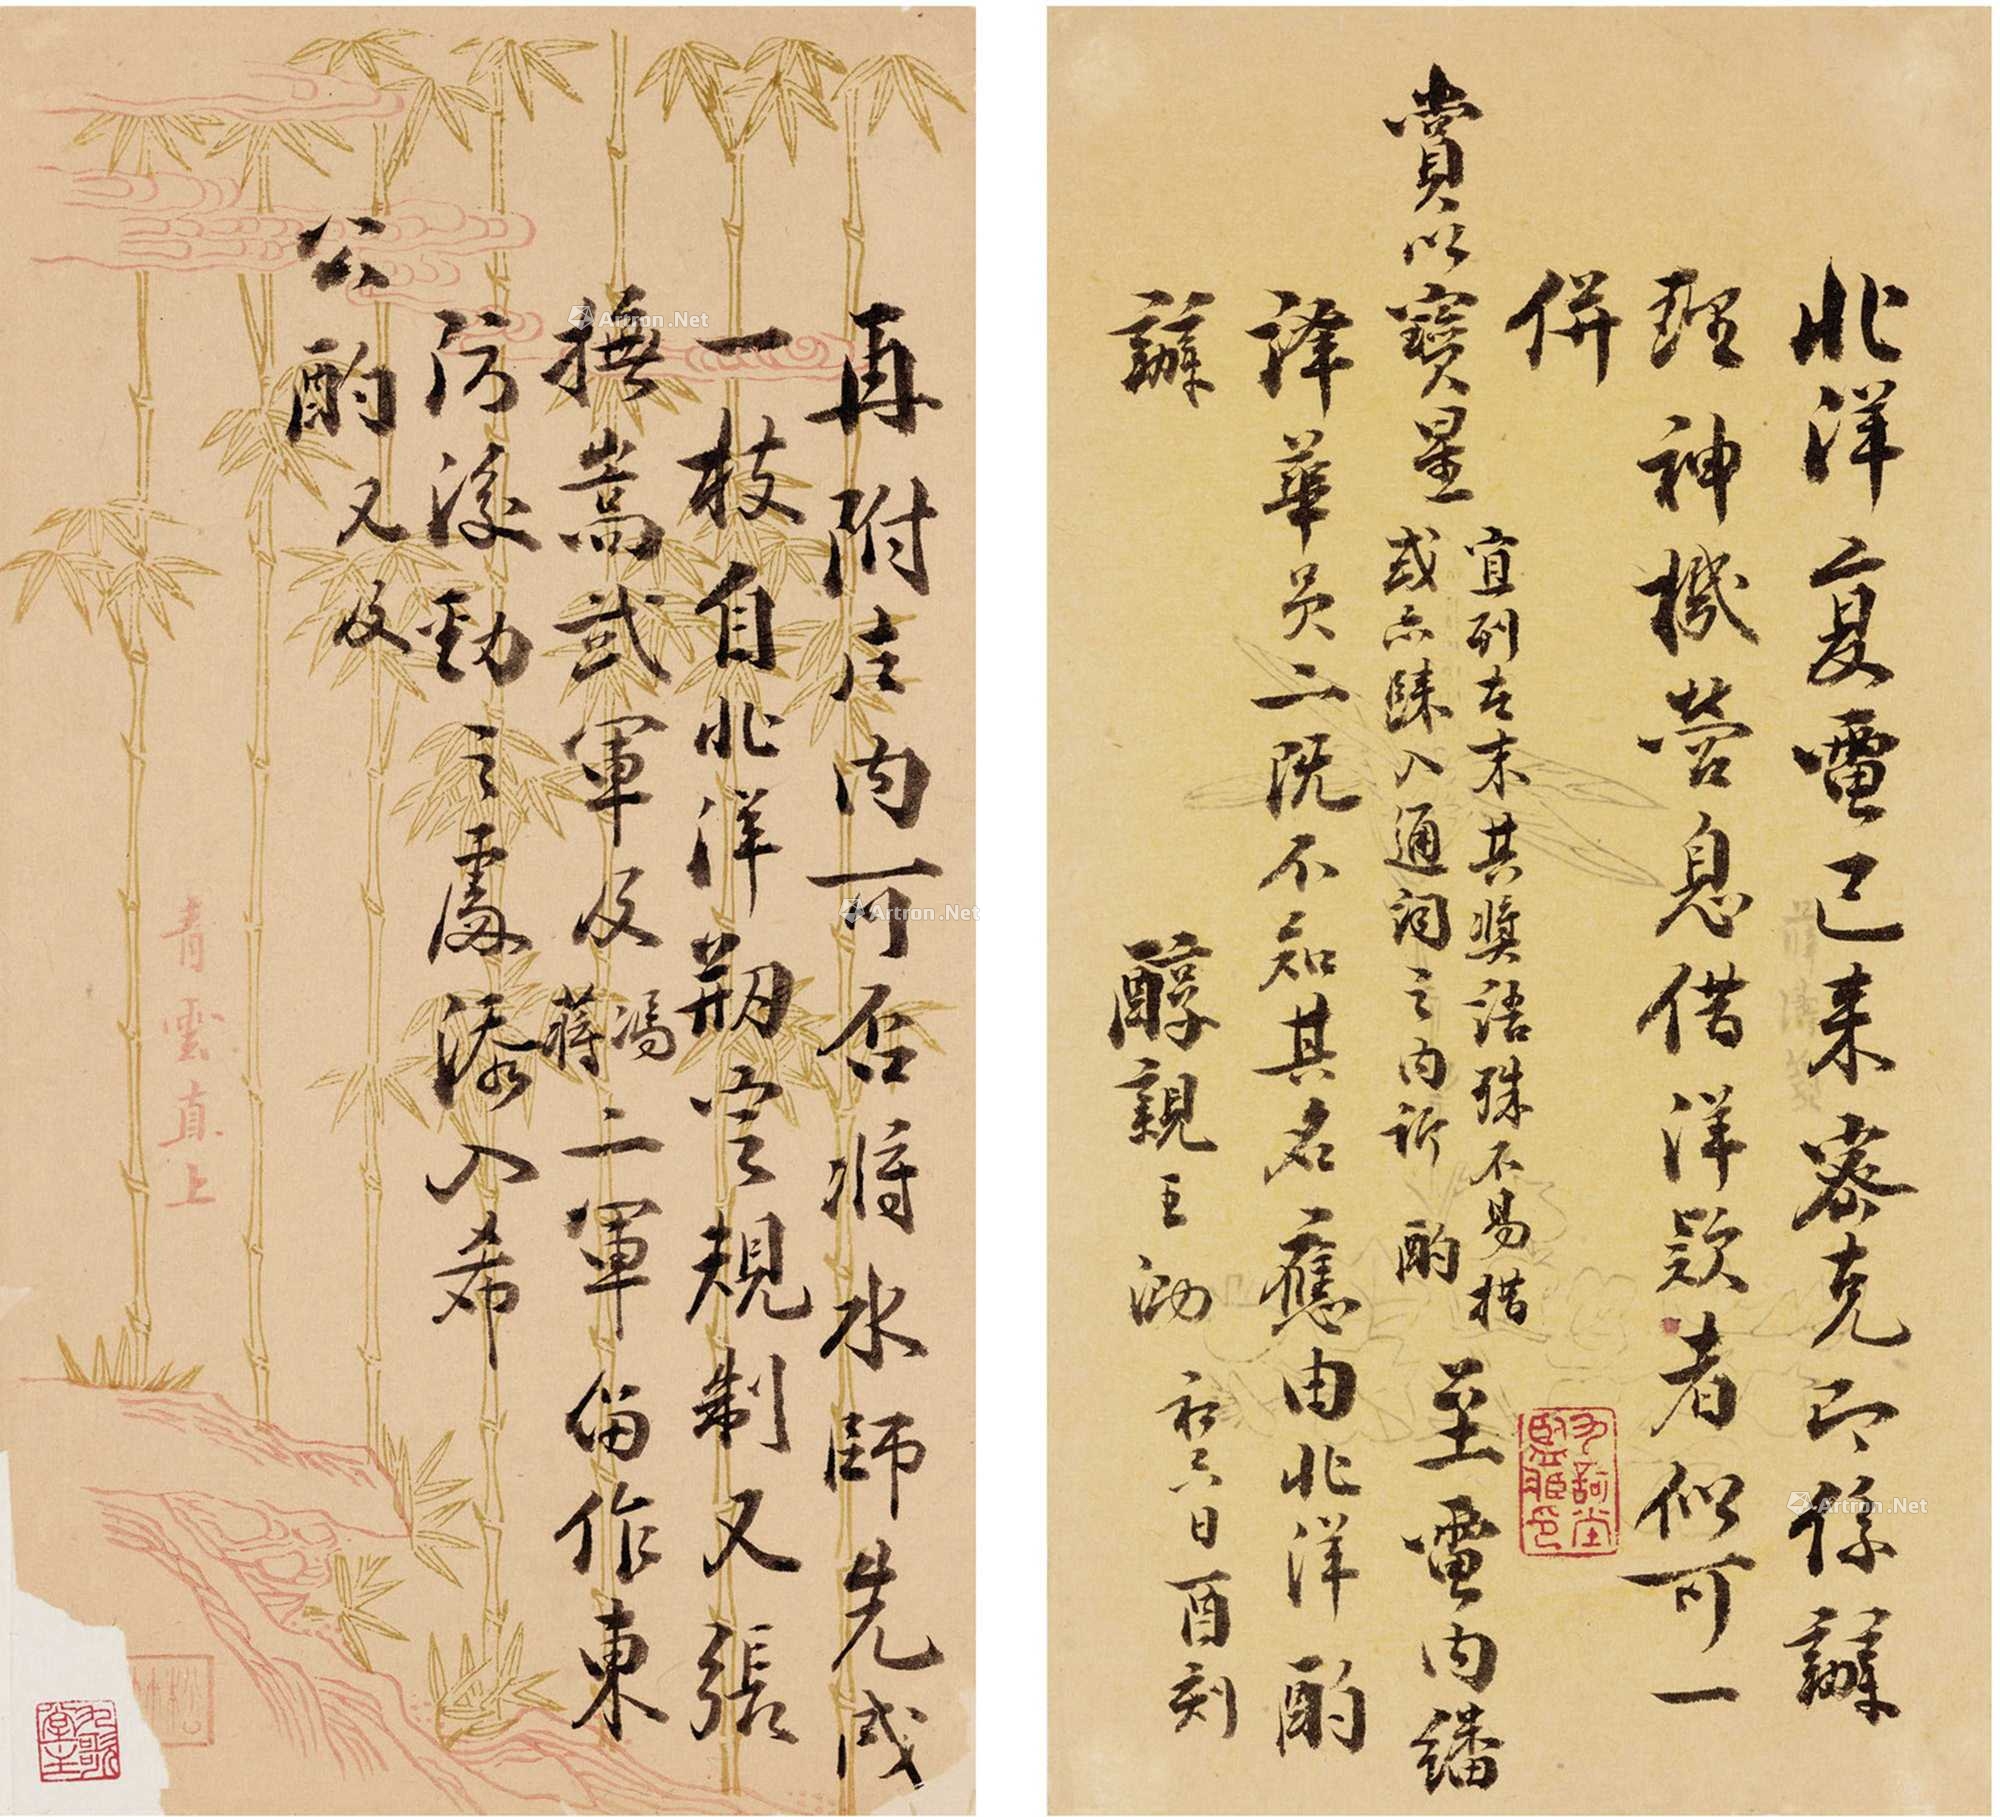 北洋一复電已来塞克即係辦
理神機營息借洋款者似可一
併
賞以寶星
宜列在末其奬語殊不易措
或亦歸入通词之内祈酌
至電内繙
譯華員二既不知其名應由北洋酌
辦
醇親王泐 初六日酉刻
再附片内可否将水師先成
一枝自北洋剏定規制又張
撫嵩武軍及馮蔣二軍留作東
防後勁之處添入希
公酌 又及
青雲直上
Artron.Net
Artron.Net
Artron.Net